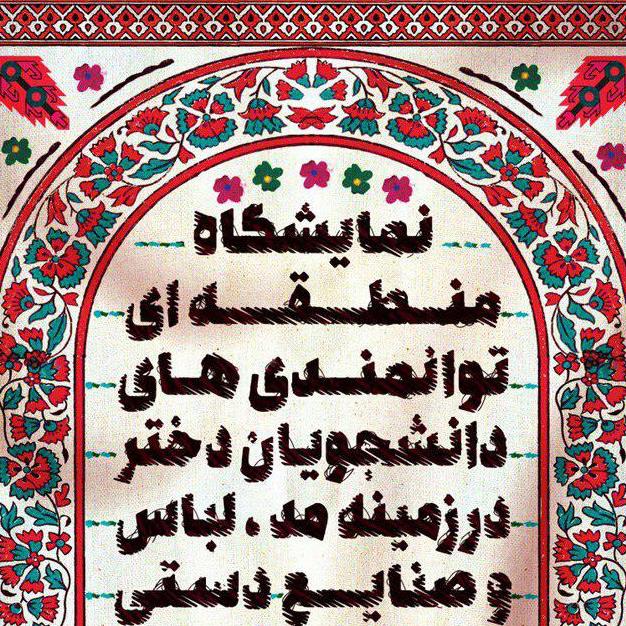 نمایشگاه
منطقه ای
توانمندی های
دانشجویان دختر
در زمینه مد، لباس
و صنایع دستی